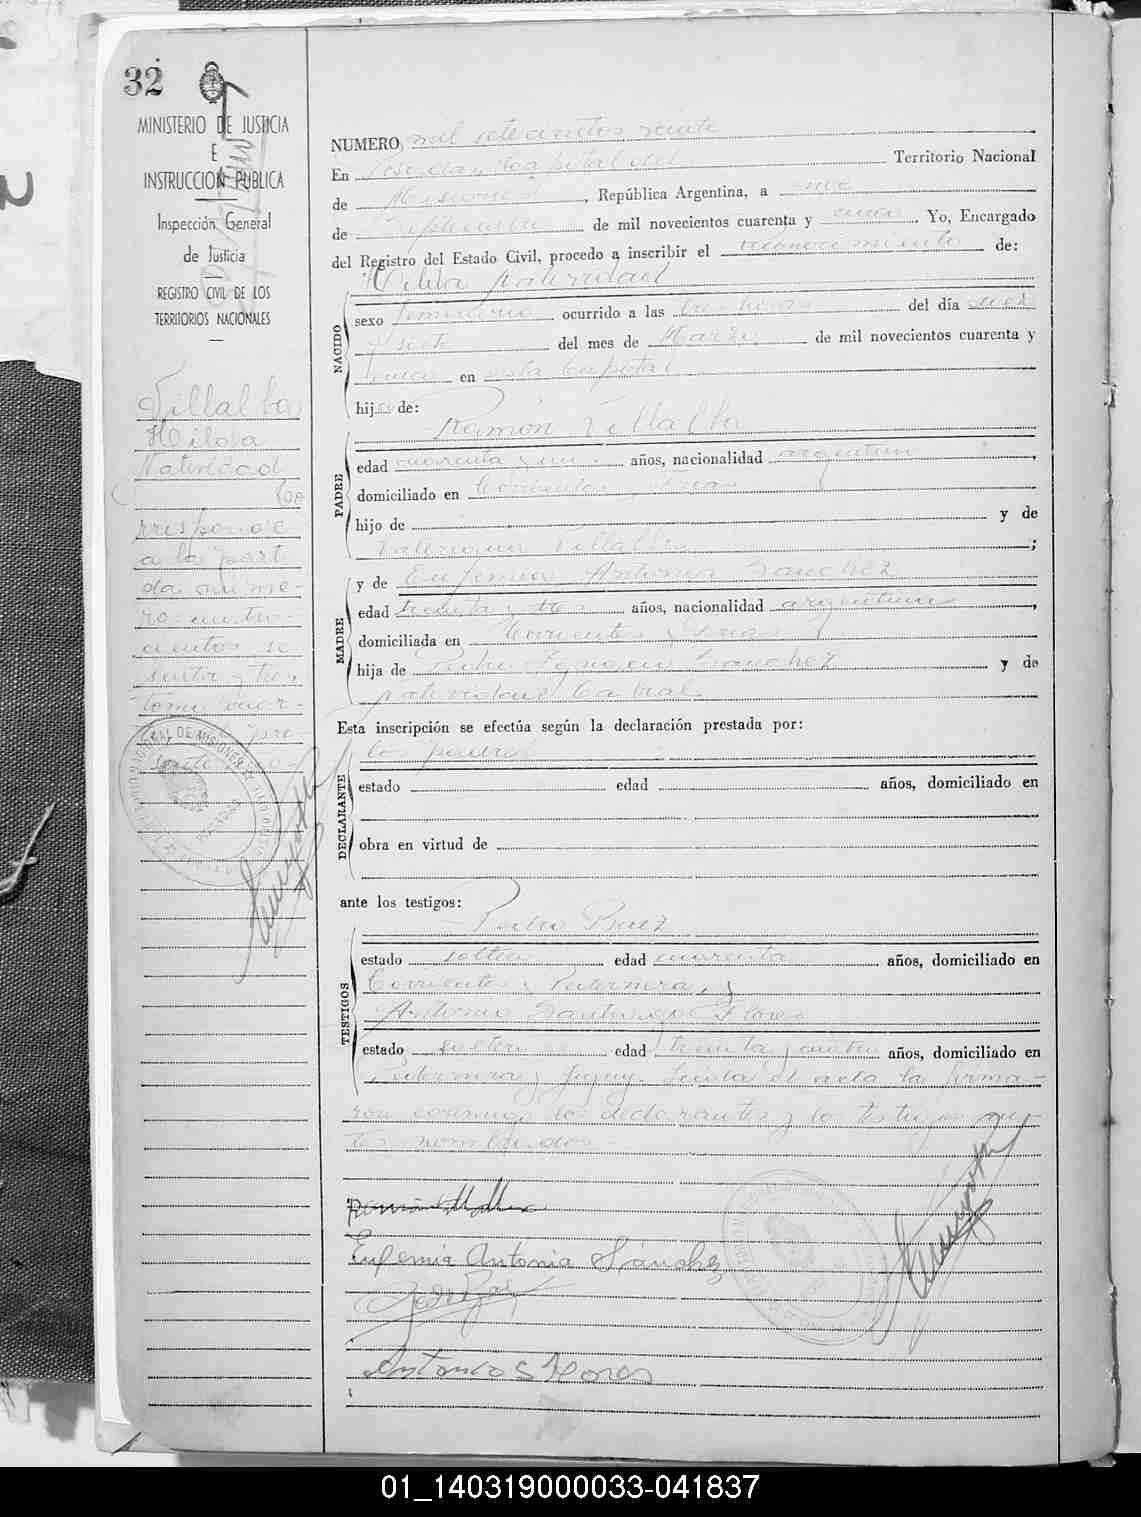 32
MINISTERIO DE JUSTICIA
E
INSTRUCCION PUBLICA
Inspección General
de Justicia
REGISTRO CIVIL DE LOS
TERRITORIOS NACIONALES
Villalba
Hilda
Natividad
Co
rresponde
a la parti
da núme-
NUMERO mil setecientos
En Posadas Capital del Territorio Nacional
de Misiones, República Argentina, a once
de Septiembre de mil novecientos cuarenta y cinco. Yo, Encargado
del Registro del Estado Civil, procedo a inscribir el reconocimiento de:
Hilda Natividad
NACIDO
sexo femenino ocurrido a las tres horas del día diez
y siete del mes de Marzo de mil novecientos cuarenta y
cinco en esta Capital
hija de:
Ramón Villalba
PADRE
edad cuarenta y un años, nacionalidad argentina,
domiciliado en Corrientes y
hijo de y de
Villalba;
MADRE
y de Eufemia Antonia Sanchez
edad treinta y tres años, nacionalidad argentina,
domiciliada en Corrientes y
hija de Pedro Ignacio Sanchez y de
Natividad Cabral
Esta inscripción se efectúa según la declaración prestada por:
los padres
DECLARANTE
estado edad años, domiciliado en
obra en virtud de
ante los testigos:
Pedro Baez
TESTIGOS
estado soltero edad cuarenta años, domiciliado en
Corrientes y Pedernera, y
Antonio Santiago Flores
estado soltero edad treinta y cuatro años, domiciliado en
Pedernera y Jujuy. Leida el acta la firma-
ron conmigo los declarantes y los testigos an-
tes nombrados.
Ramón Villalba
Eufemia Antonia Sánchez
Antonio S Flores
01_140319000033-041837